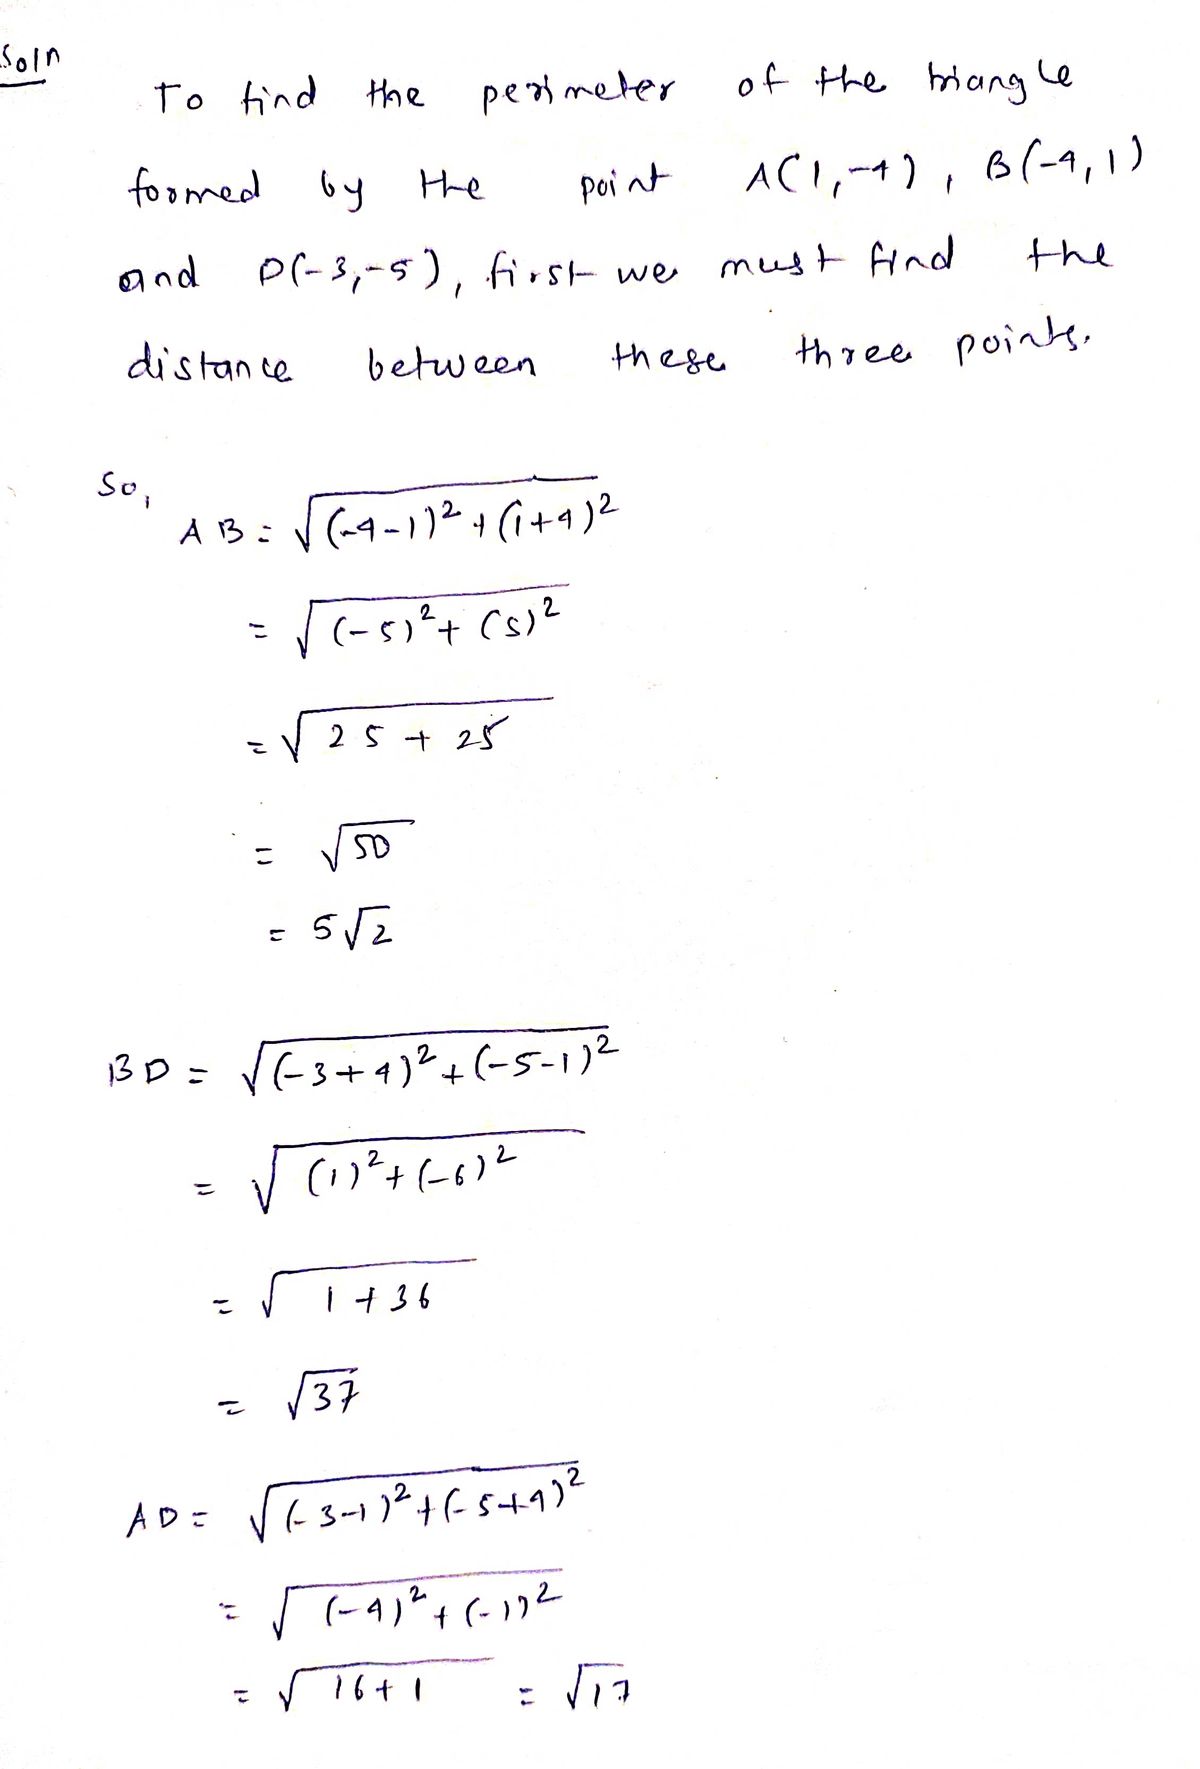 Soln
To find the perimeter of the triangle
formed by the point A(1,-4), B(-4,1)
and D(-3,-5), first we must find the
distance between these three points.
So,
AB = √(-4-1)² + (1+4)²
= √(-5)² + (5)²
= √25 + 25
= √50
= 5√2
BD = √(-3+4)² + (-5-1)²
= √(1)² + (-6)²
= √1+36
= √37
AD = √(-3-1)² + (-5+4)²
= √(-4)² + (-1)²
= √16+1 = √17